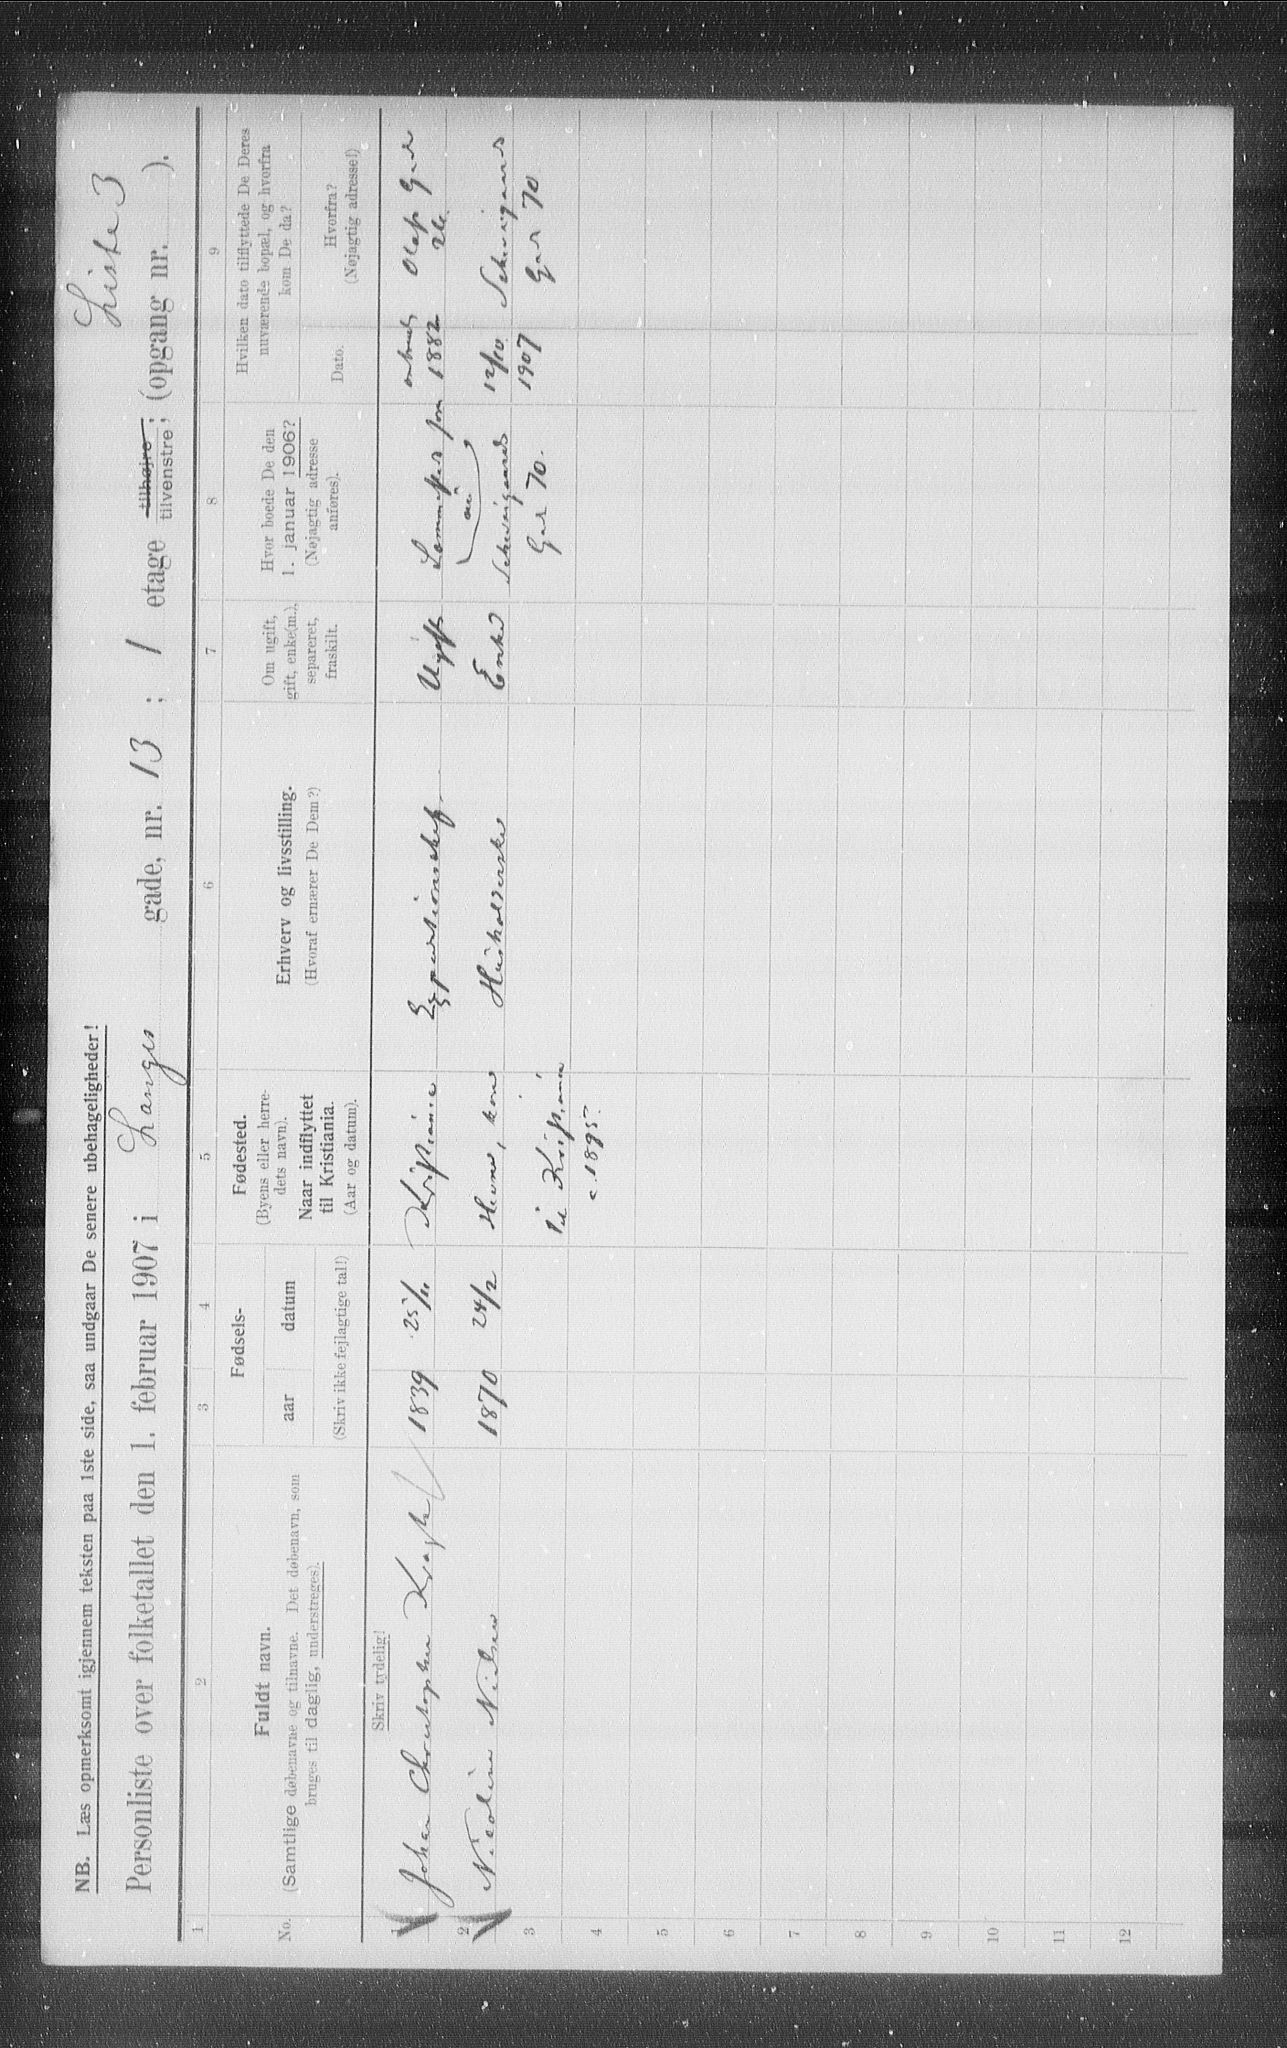 Liste 3
NB. Læs opmerksomt igjennem teksten paa 1ste side, saa undgaar De senere ubehageligheder!
Personliste over folketallet den 1. februar 1907 i Langes gade, nr. 13 ; 1 etage tilhøjre tilvenstre ; (opgang nr. ).
1 2 3 4 5 6 7 8 9
No.
Fuldt navn.
(Samtlige døbenavne og tilnavne. Det døbenavn, som
bruges til daglig, understreges).
Fødsels-
aar datum
(Skriv ikke fejlagtige tal!)
Fødested.
(Byens eller herre-
dets navn).
Naar indflyttet
til Kristiania.
(Aar og datum).
Erhverv og livsstilling.
(Hvoraf ernærer De Dem?)
Om ugift,
gift, enke(m.),
separeret,
fraskilt.
Hvor boede De den
1. januar 1906?
(Nøjagtig adresse
anføres).
Hvilken dato tilflyttede De Deres
nuværende bopæl, og hvorfra
kom De da?
Dato.
Hvorfra?
(Nøjagtig adresse!)
Skriv tydelig!
1 Johan Christopher 1839 25/11 Kristiania Expeditionschef Ugift Sammested som nu 1882 Olafs Gad
2 Nicoline Nielsen 1870 24/2 kom Husholderske Enke Schweigaards 12/10 Schweigaards
til Kristiania Gad 70. 1907 Gad 70
c. 1895.
3
4
5
6
7
8
9
10
11
12